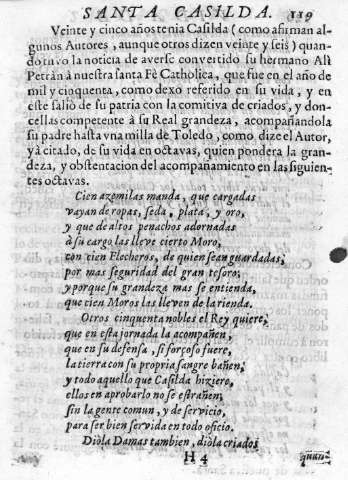 SANTA CASILDA. 119
Veinte y cinco años tenia Casilda (como afirman al-
gunos Autores, aunque otros dizen veinte y seis) quan-
do tuvo la noticia de averse convertido su hermano Ali
Petràn à nuestra santa Fè Catholica, que fue en el año de
mil y cinquenta, como dexo referido en su vida, y en
este saliò de su patria con la comitiva de criados, y don-
cellas competente à su Real grandeza, acompañandola
su padre hasta vna milla de Toledo, como dize el Autor,
yà citado, de su vida en octavas, quien pondera la gran-
deza, y obstentacion del acompañamiento en las siguien-
tes octavas.
Cien azemilas manda, que cargadas
vayan de ropas, seda, plata, y oro,
y que de altos penachos adornadas
à su cargo las lleve cierto Moro,
con cien Flecheros, de quien sean guardadas,
por mas seguridad del gran tesoro;
y porque su grandeza mas se entienda,
que cien Moros las lleven de la rienda.
Otros cinquenta nobles el Rey quiere,
que en esta jornada la acompañen,
que en su defensa, si forçoso fuere,
la tierra con su propria sangre bañen;
y todo aquello que Casilda hiziere,
ellos en aprobarlo no se estrañen;
sin la gente comun, y de servicio,
para ser bien servida en todo oficio.
Diòla Damas tambien, diòla criados
H 4